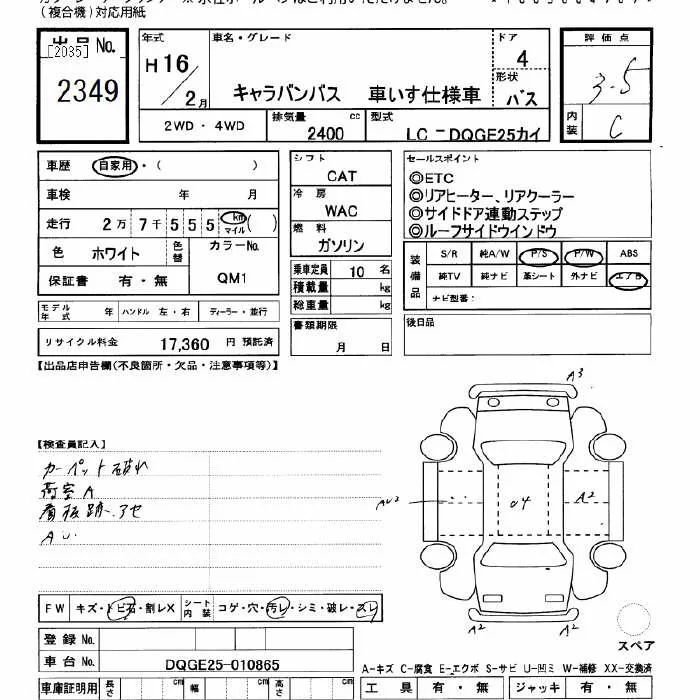 (複合機)対応用紙
出品 No.
[2035]
2349
年式
H16/2月
車名・グレード
キャラバンバス 車いす仕様車
ドア
4
形状
バス
評価点
3.5
内装
C
2WD・4WD
排気量
cc
2400
型式
LC－DQGE25カイ
車歴 自家用・( )
車検 年 月
走行 2万7千555 km マイル ( )
色 ホワイト 色替 カラーNo.
保証書 有・無 QM1
シフト
CAT
冷房
WAC
燃料
ガソリン
乗車定員 10 名
積載量 kg
総重量 kg
書類期限
月 日
セールスポイント
◎ETC
◎リアヒーター、リアクーラー
◎サイドドア連動ステップ
◎ルーフサイドウインドウ
装備品
S/R 純A/W P/S P/W ABS
純TV 純ナビ 革シート 外ナビ エアB
ナビ型番:
後日品
モデル年式 年 ハンドル 左・右 ディーラー・並行
リサイクル料金 17,360 円 預託済
【出品店申告欄(不良箇所・欠品・注意事項等)】
【検査員記入】
カーペット破れ
荷室A
看板跡.アセ
AU.
A3
AU2
04
A2
A2
A2
スペア
FW キズ・トビ石・割レX シート内装 コゲ・穴・汚レ・シミ・破レ・スレ
登録No.
車台No. DQGE25-010865
車庫証明用 長さ cm 幅 cm 高さ cm
A-キズ C-腐食 E-エクボ S-サビ U-凹ミ W-補修 XX-交換済
工具 有・無 ジャッキ 有・無